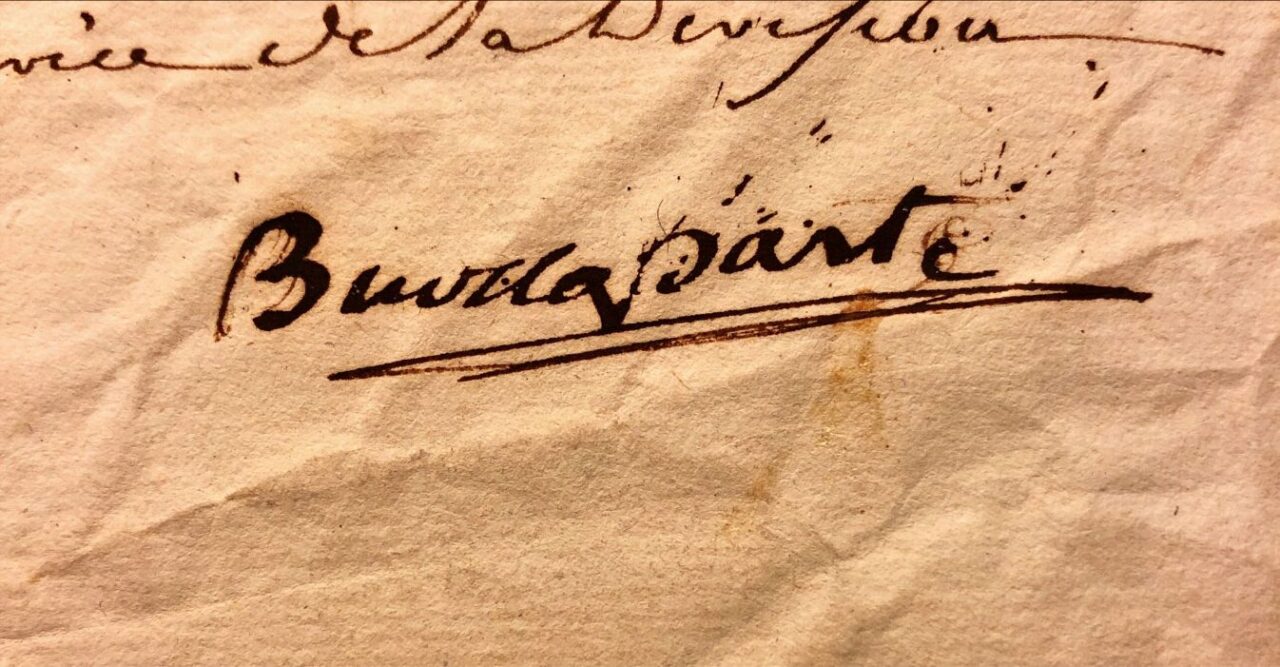 vice de la Division
Buonaparte